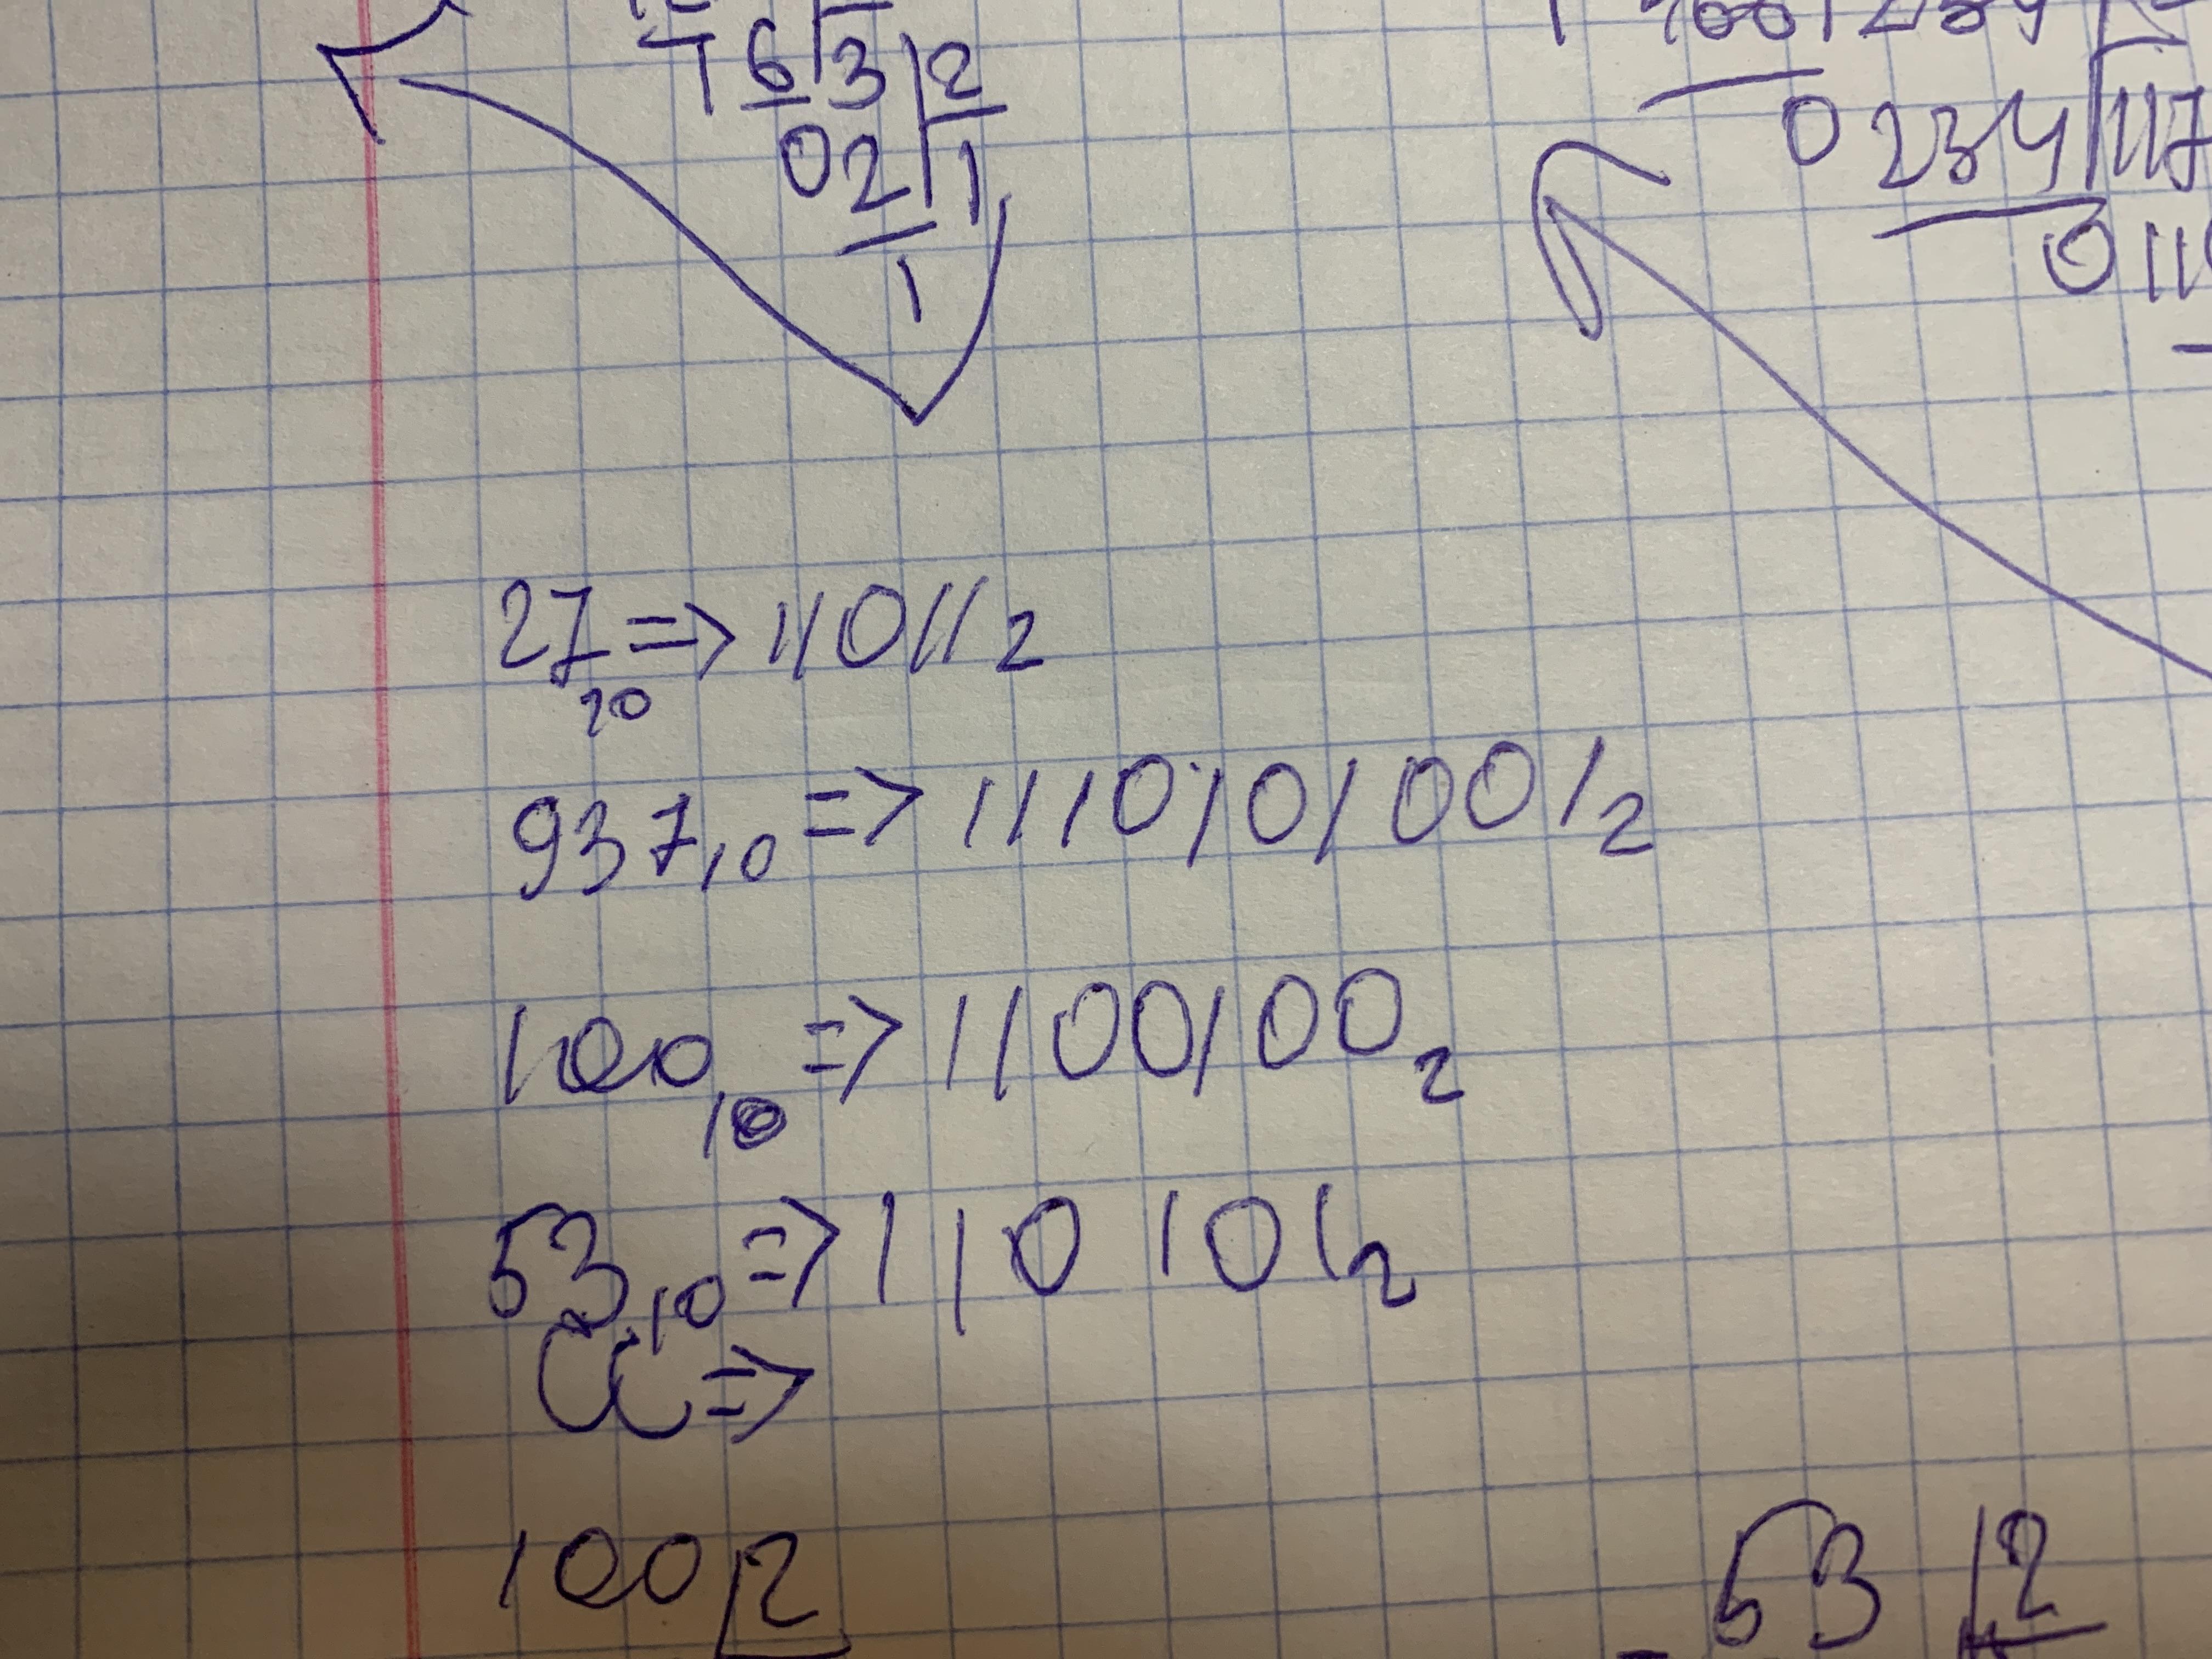 6 3 2
0 2 1
1
0 234 117
0
27₁₀ => 11011₂
937,₁₀ => 1110101001₂
100₁₀ => 1100100₂
53,₁₀ => 110101₂
CC =>
100 2
- 53 2